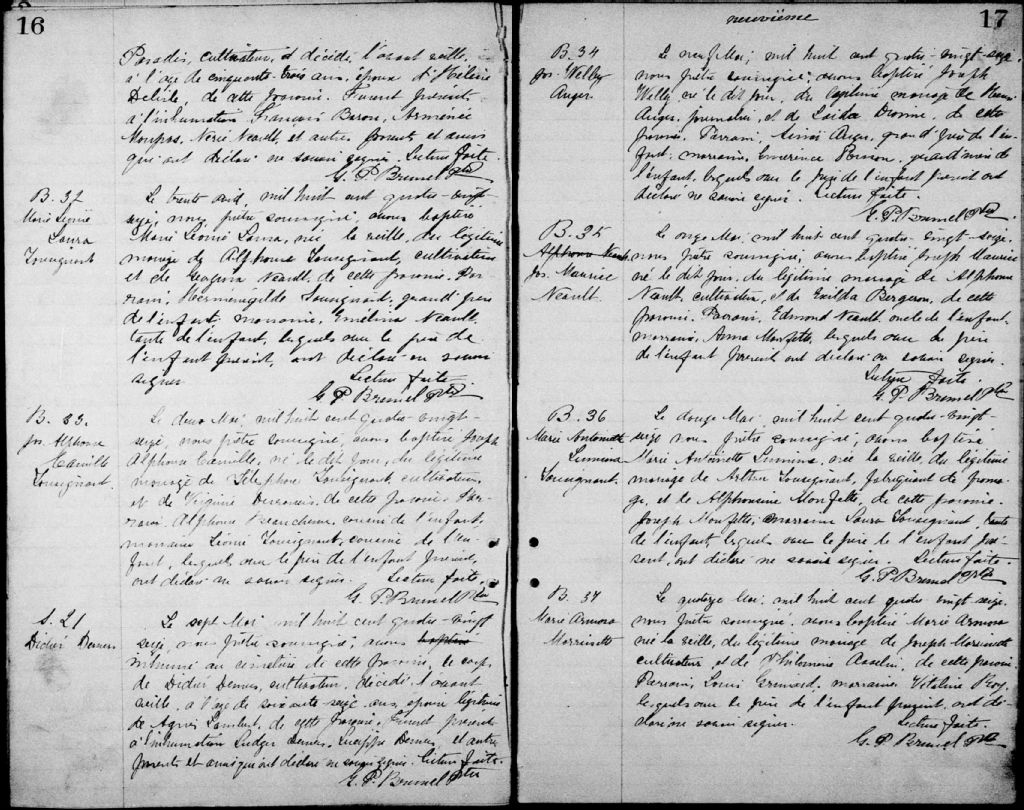 16
Paradis, cultivateur, et décédé l'avant veille,
à l'age de cinquante-trois ans, époux d'Hélène
Delisle, de cette paroisse. Furent présents
à l'inhumation François Baron,
et autres parents et amis
qui ont déclaré ne savoir signer. Lecture faite.
G. P. Brunel Ptre
B. 32
Marie Léonie
Laura
Tousignant
Le trente avril, mil huit cent quatre-vingt-
seize, nous prêtre soussigné, avons baptisé
Marie Léonie Laura, née la veille, du légitime
mariage de Alphonse Tousignant, cultivateur
et de Georgina Neault, de cette paroisse. Par-
rain, Herménégilde Tousignant, grand'père
de l'enfant, marraine, Emélina Neault
tante de l'enfant, lesquels avec le père de
l'enfant présent, ont déclaré ne savoir
signer
Lecture faite.
G. P. Brunel Ptre
B. 33.
Jos. Alphonse
Camille
Tousignant.
Le deux Mai mil huit cent quatre-vingt-
seize, nous prêtre soussigné, avons baptisé Joseph
Alphonse Camille, né le dit jour, du légitime
mariage de Télesphore Tousignant, cultivateur,
et de Virginie de cette paroisse. Par-
rain, Alphonse Beauchesne, cousin de l'enfant,
marraine Léonie Tousignant, cousine de l'en-
fant, lesquels avec le père de l'enfant présent,
ont déclaré ne savoir signer. Lecture faite.
G. P. Brunel Ptre
S. 21
Didier Demers
Le sept Mai mil huit cent quatre-vingt
seize, nous prêtre soussigné, avons baptisé
inhumé au cimetière de cette paroisse, le corps
de Didier Demers, cultivateur, décédé l'avant
veille, à l'age de soixante seize ans, époux légitime
de Agnès Lambert, de cette paroisse. Furent présents
à l'inhumation Ludger Demers, Demers, et autres
parents et amis qui ont déclaré ne savoir signer. Lecture faite.
G. P. Brunel Ptre
17
neuvième
B. 34
Jos. Welly
Auger
Le neuf Mai, mil huit cent quatre-vingt-seize,
nous prêtre soussigné, avons baptisé Joseph
Welly né le dit jour, du légitime mariage de
Auger, journalier, et de Dionne, de cette
paroisse. Parrain, Auger, grand'père de l'en-
fant, marraine, grand'mère de
l'enfant, lesquels avec le père de l'enfant présent ont
déclaré ne savoir signer. Lecture faite
G. P. Brunel Ptre
B. 35
Alphonse Neault
Jos. Maurice
Neault.
Le onze Mai, mil huit cent quatre-vingt-seize,
nous prêtre soussigné, avons baptisé Joseph Maurice
né le dit jour, du légitime mariage de Alphonse
Neault, cultivateur, et de Exilda Bergeron, de cette
paroisse. Parrain, Edmond Neault oncle de l'enfant
marraine, Anna Monfette, lesquels avec le père
de l'enfant présent ont déclaré ne savoir signer.
Lecture faite.
G. P. Brunel Ptre
B. 36
Marie Antoinette
Tousignant
Le douze Mai mil huit cent quatre-vingt-
seize nous prêtre soussigné, avons baptisé
Marie Antoinette née la veille, du légitime
mariage de Arthur Tousignant, fabriquant de froma-
ge, et de Alphonsine Monfette, de cette paroisse.
Joseph Monfette, marraine Laura Tousignant, tante
de l'enfant, lesquels avec le père de l'enfant pré-
sent, ont déclaré ne savoir signer. Lecture faite.
G. P. Brunel Ptre
B. 37
Marie Armosa
Morrissette
Le quatorze Mai mil huit cent quatre-vingt-seize
nous prêtre soussigné, avons baptisé Marie Armosa
née la veille, du légitime mariage de Joseph Morrissette
cultivateur, et de Philomène Asselin, de cette paroisse.
Parrain, Louis Grimard, marraine, Vitaline Roy,
lesquels avec le père de l'enfant présent, ont dé-
claré ne savoir signer. Lecture faite.
G. P. Brunel Ptre